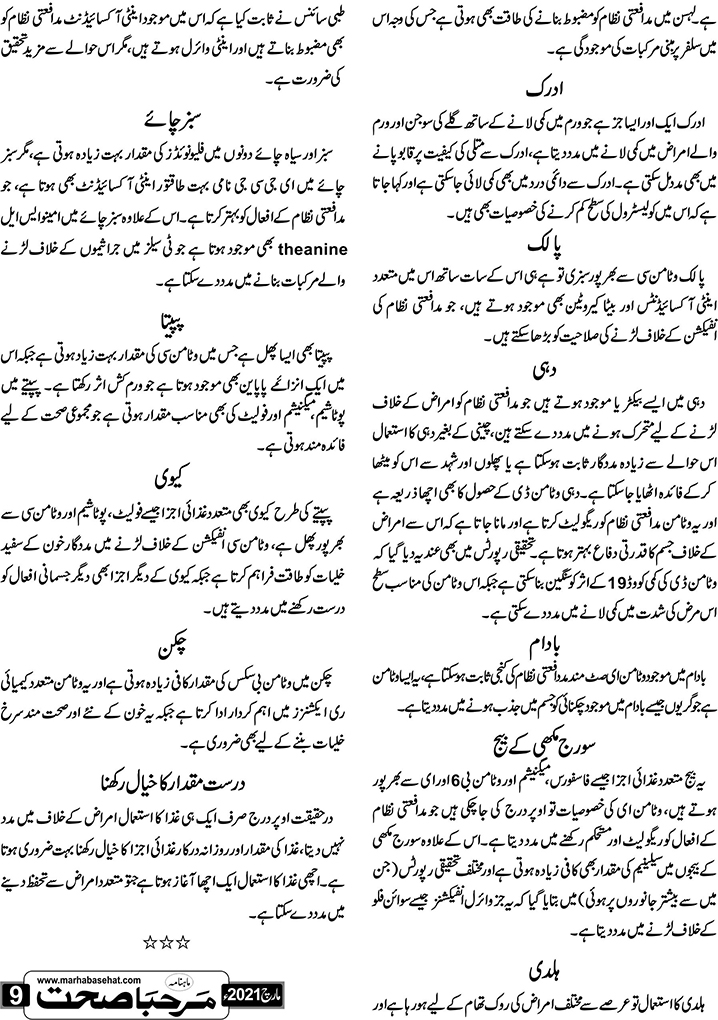 ہے۔ لہسن میں مدافعتی نظام کو مضبوط بنانے کی طاقت بھی ہوتی ہے جس کی وجہ اس
میں سلفر پر مبنی مرکبات کی موجودگی ہے۔
ادرک
ادرک ایک اور ایسا جز ہے جو ورم میں کمی لانے کے ساتھ گلے کی سوجن اور ورم
والے امراض میں کمی لانے میں مدد دیتا ہے، ادرک سے متلی کی کیفیت پر قابو پانے
میں بھی مدد مل سکتی ہے۔ ادرک سے دائمی درد میں بھی کمی لائی جاسکتی ہے اور کہا جاتا
ہے کہ اس میں کولیسٹرول کی سطح کم کرنے کی خصوصیات بھی ہیں۔
پالک
پالک وٹامن سی سے بھرپور سبزی تو ہے ہی اس کے سات ساتھ اس میں متعدد
اینٹی آکسائیڈنٹس اور بیٹا کیروٹین بھی موجود ہوتے ہیں، جو مدافعتی نظام کی
انفیکشن کے خلاف لڑنے کی صلاحیت کو بڑھا سکتے ہیں۔
دہی
دہی میں ایسے بیکٹریا موجود ہوتے ہیں جو مدافعتی نظام کو امراض کے خلاف
لڑنے کے لیے متحرک ہونے میں مدد دے سکتے ہین، چینی کے بغیر دہی کا استعمال
اس حوالے سے زیادہ مددگار ثابت ہوسکتا ہے یا پھلوں اور شہد سے اس کو میٹھا
کرکے فائدہ اٹھایا جاسکتا ہے۔ دہی وٹامن ڈی کے حصول کا بھی اچھا ذریعہ ہے
اور یہ وٹامن مدافعتی نظام کو ریگولیٹ کرتا ہے اور مانا جاتا ہے کہ اس سے امراض
کے خلاف جسم کا قدرتی دفاع بہتر ہوتا ہے۔ تحقیقی رپورٹس میں بھی عندیہ دیا گیا کہ
وٹامن ڈی کی کمی کووڈ 19 کے اثر کو سنگین بناسکتی ہے جبکہ اس وٹامن کی مناسب سطح
اس مرض کی شدت میں کمی لانے میں مدد دے سکتی ہے۔
بادام
بادام میں موجود وٹامن ای صٹ مند مدافعتی نظام کی کنجی ثابت ہوسکتا ہے، یہ ایسا وٹامن
ہے جو گریوں جیسے بادام میں موجود چکنائی کو جسم میں جذب ہونے میں مدد دیتا ہے۔
سورج مکھی کے بیج
یہ بیج متعدد غذائی اجزا جیسے فاسفورس، میگنیشم اور وٹامن بی 6 اور ای سے بھرپور
ہوتے ہیں، وٹامن ای کی خصوصیات تو اوپر درج کی جاچکی ہیں جو مدافعتی نظام
کے افعال کو ریگولیٹ اور مستحکم رکھنے میں مدد دیتا ہے۔ اس کے علاوہ سورج مکھی
کے بیجوں میں سیلینیم کی مقدار بھی کافی زیادہ ہوتی ہے اور مختلف تحقیقی رپورٹس (جن
میں سے بیشتر جانوروں پر ہوئی) میں بتایا گیا کہ یہ جز وائرل انفیکشنز جیسے سوائن فلو
کے خلاف لڑنے میں مدد دیتا ہے۔
ہلدی
ہلدی کا استعمال تو عرصے سے مختلف امراض کی روک تھام کے لیے ہو رہا ہے اور
طبی سائنس نے ثابت کیا ہے کہ اس میں موجود اینٹی آکسائیڈنٹ مدافعتی نظام کو
بھی مضبوط بناتے ہیں اور اینٹی وائرل ہوتے ہیں، مگر اس حوالے سے مزید تحقیق
کی ضرورت ہے۔
سبز چائے
سبز اور سیاہ چائے دونوں میں فلیونوئڈز کی مقدار بہت زیادہ ہوتی ہے، مگر سبز
چائے میں ای جی سی جی نامی بہت طاقتور اینٹی آکسائیڈنٹ بھی ہوتا ہے، جو
مدافعتی نظام کے افعال کو بہتر کرتا ہے۔ اس کے علاوہ سبز چائے میں امینو ایس ایل
theanine بھی موجود ہوتا ہے جو ٹی سیلز میں جراثیموں کے خلاف لڑنے
والے مرکبات بنانے میں مدد دے سکتا ہے۔
پپیتا
پپیتا بھی ایسا پھل ہے جس میں وٹامن سی کی مقدار بہت زیاد ہوتی ہے جبکہ اس
میں ایک انزائے پاپاین بھی موجود ہوتا ہے جو ورم کش اثر رکھتا ہے۔ پپیتے میں
پوٹاشیم، میگنیشم اور فولیٹ کی بھی مناسب مقدار ہوتی ہے جو مجموعی صحت کے لیے
فائدہ مند ہوتی ہے۔
کیوی
پپیتے کی طرح کیوی بھی متعدد غذائی اجزا جیسے فولیٹ، پوٹاشیم اور وٹامن سی سے
بھرپور پھل ہے، وٹامن سی انفیکشن کے خلاف لڑنے میں مددگار خون کے سفید
خلیات کو طاقت فراہم کرتا ہے جبکہ کیوی کے دیگر اجزا بھی دیگر جسمانی افعال کو
درست رکھنے میں مدد دیتے ہیں۔
چکن
چکن میں وٹامن بی سکس کی مقدار کافی زیادہ ہوتی ہے اور یہ وٹامن متعدد کیمیائی
ری ایکشنز میں اہم کردار ادا کرتا ہے جبکہ یہ خون کے نئے اور صحت مند سرخ
خلیات بننے کے لیے بھی ضروری ہے۔
درست مقدار کا خیال رکھنا
درحقیقت اوپر درج صرف ایک ہی غذا کا استعمال امراض کے خلاف میں مدد
نہیں دیتا، غذا کی مقدار اور روزانہ درکار غذائی اجزا کا خیال رکھنا بہت ضروری ہوتا
ہے۔ اچھی غذا کا استعمال ایک اچھا آغاز ہوتا ہے جنو متعدد امراض سے تحفظ دینے
میں مدد دے سکتا ہے۔
☆☆☆
9 www.marhabasehat.com ماہنامہ مرحبا صحت مارچ 2021ء